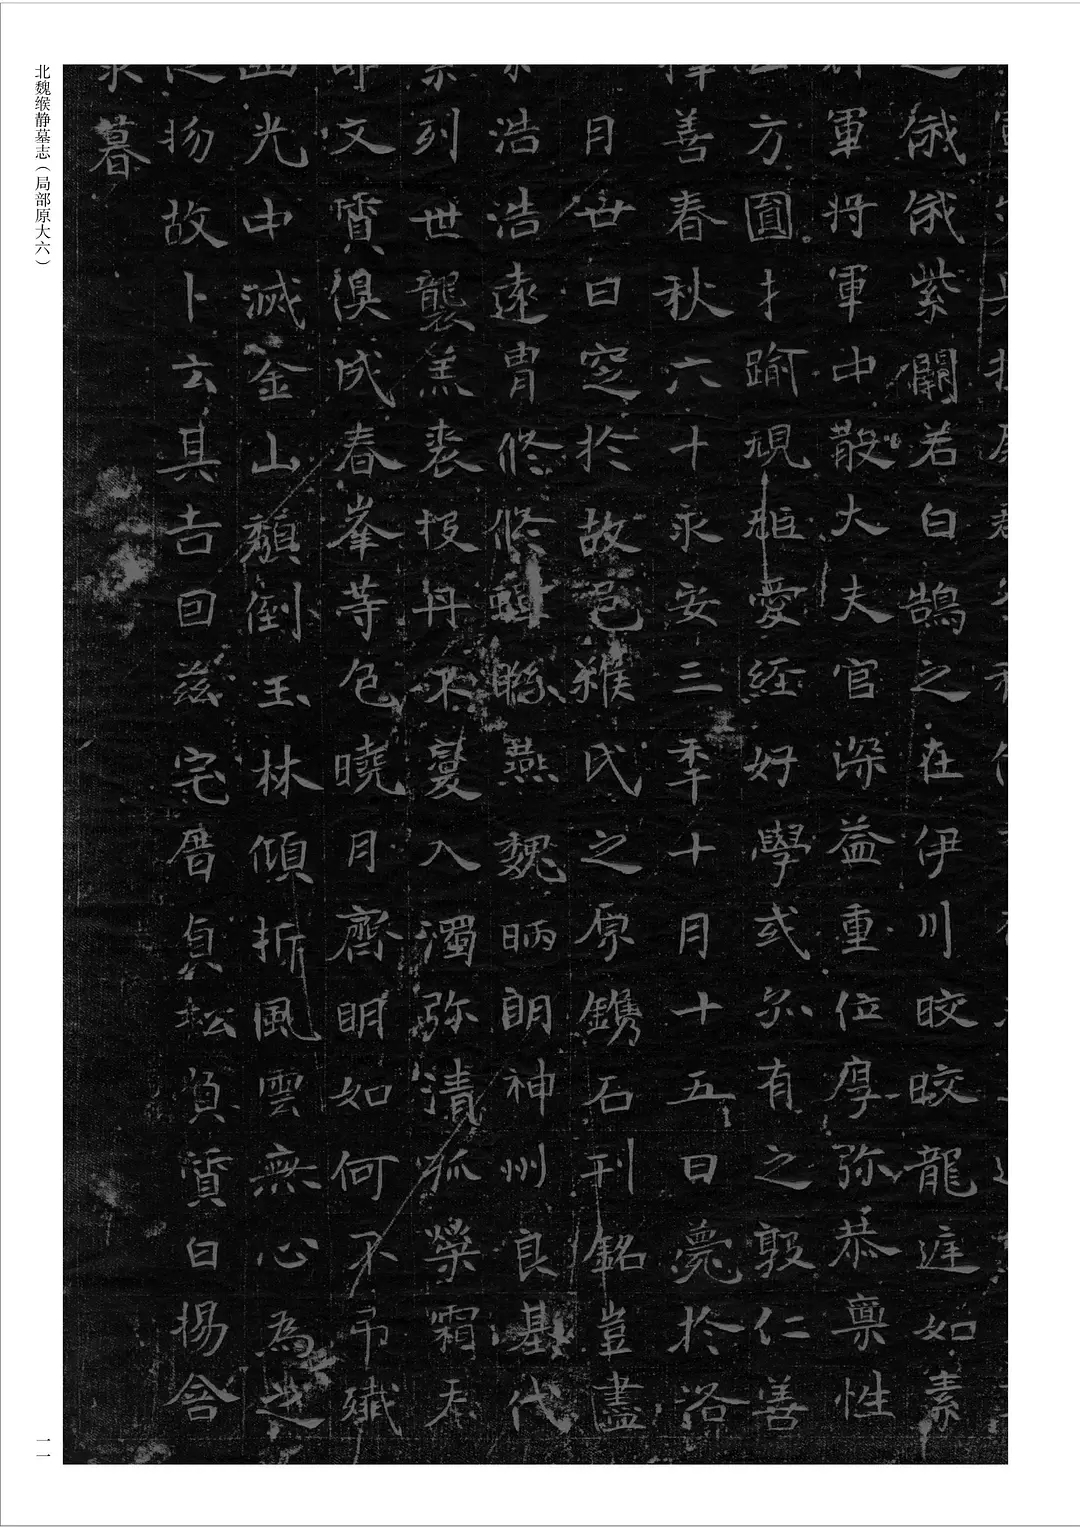 俄俄紫闕若白鵠之在伊川晈晈龍逬如素
軍將軍中散大夫官深益重位厚弥恭稟性
方圓才踰規矩愛經好學或尒有之敦仁善
善春秋六十永安三年十月十五日薨於洛
月廿日窆於故邑緱氏之原鐫石刊銘豈盡
浩浩遠胄脩脩蟬聯燕魏昞朗神州良基代
列世襲羔裘投丹不變入濁弥清孤榮霜
文質俱成春峯等色曉月齊明如何不弔殲
光中滅金山頹倒玉林傾折風雲無心為之
物故卜云其吉回茲宅厝貞松負質白楊含
暮
北魏缑静墓志（局部原大六）
一一